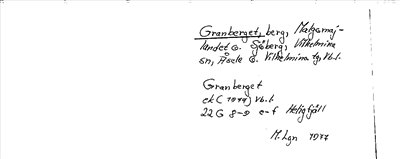 Granberget, berg, Malgomaj-
landet o. Sjöberg, Vilhelmina
sn, Åsele o. Vilhelmina tg, Vb.l.
Granberget
ek (1974) Vb.l.
22 G 8-9 e-f Heligfjäll
M. Lgn 1977